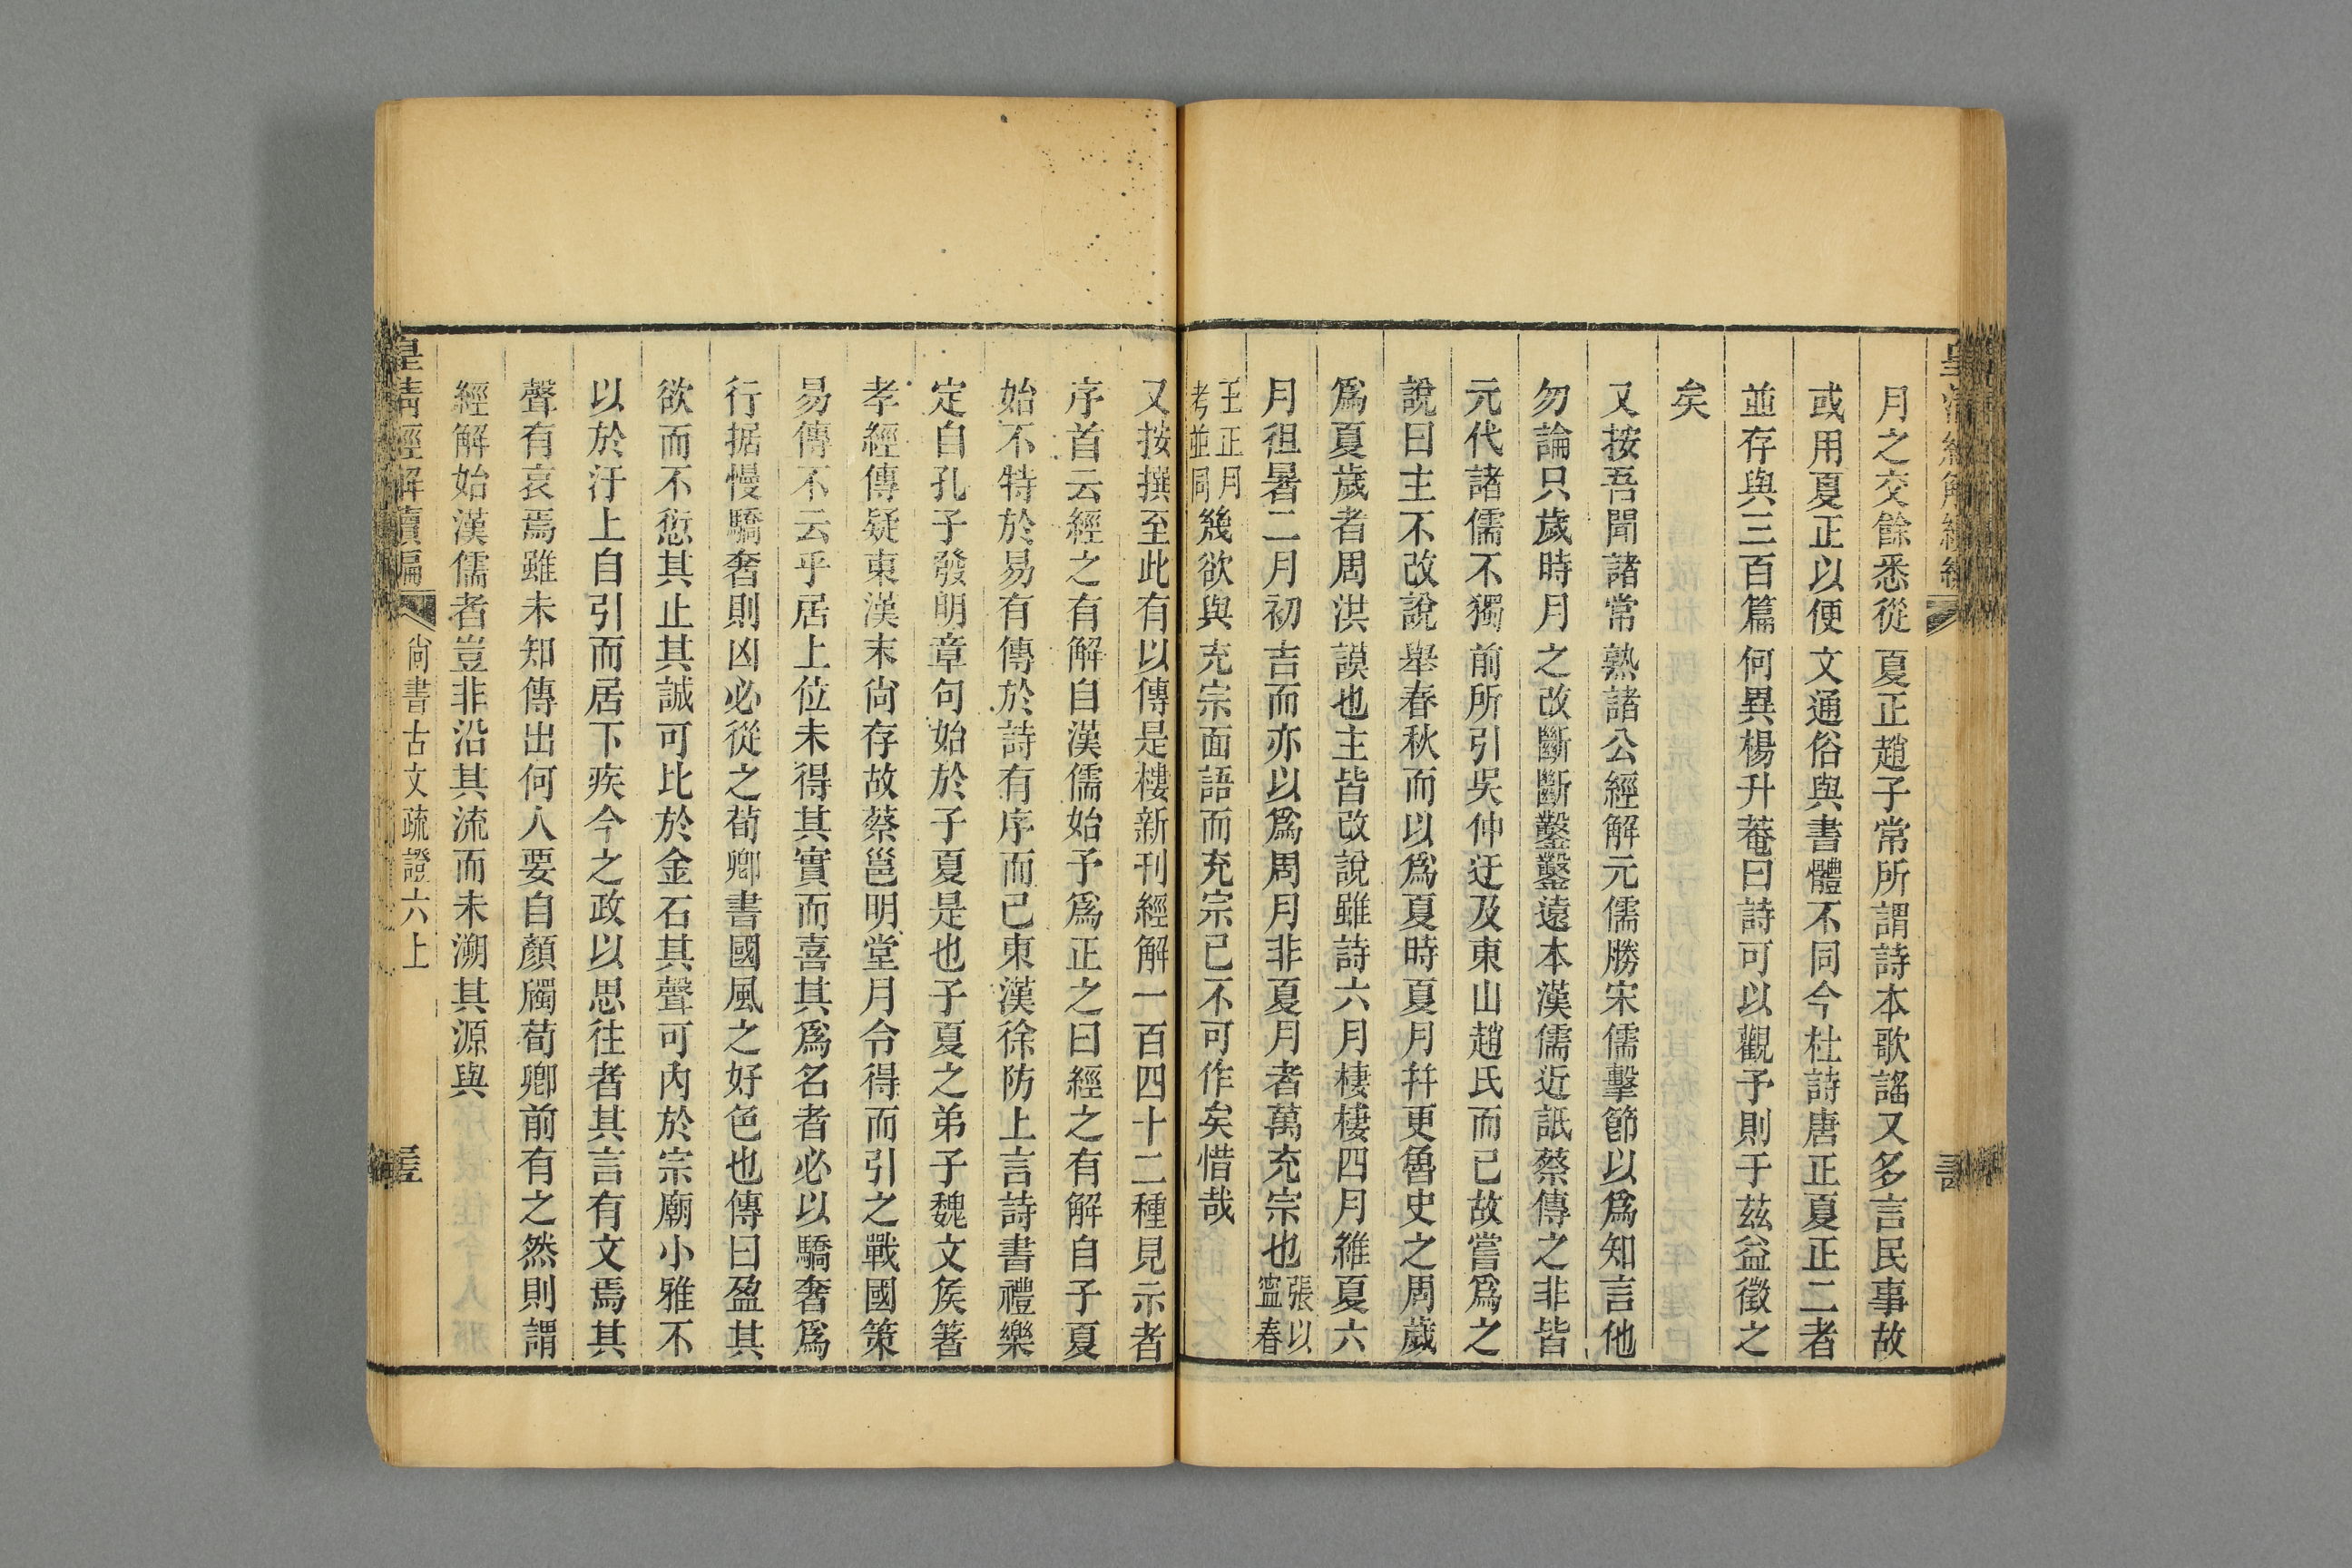 月之交餘悉從夏正趙子常所謂詩本歌謠又多言民事故
或用夏正以便文通俗與書體不同今杜詩唐正夏正二者
並存與三百篇何異楊升菴曰詩可以觀予則于茲益徵之
矣
又按吾聞諸常熟諸公經解元儒勝宋儒擊節以爲知言他
勿論只歲時月之改斷斷鑿鑿遠本漢儒近詆蔡傳之非皆
元代諸儒不獨前所引吳仲迂及東山趙氏而已故嘗爲之
說曰主不改說舉春秋而以爲夏時夏月幷更魯史之周歲
爲夏歲者周洪謨也主皆改說雖詩六月棲棲四月維夏六
月徂暑二月初吉而亦以爲周月非夏月者萬充宗也張以
寧春
王正月
考並同幾欲與充宗面語而充宗已不可作矣惜哉
又按撰至此有以傳是樓新刊經解一百四十二種見示者
序首云經之有解自漢儒始予爲正之曰經之有解自子夏
始不特於易有傳於詩有序而已東漢徐防上言詩書禮樂
定自孔子發明章句始於子夏是也子夏之弟子魏文矦著
孝經傳疑東漢末尙存故蔡邕明堂月令得而引之戰國策
易傳不云乎居上位未得其實而喜其爲名者必以驕奢爲
行据慢驕奢則凶必從之荀卿書國風之好色也傳曰盈其
欲而不愆其止其誠可比於金石其聲可內於宗廟小雅不
以於汙上自引而居下疾今之政以思往者其言有文焉其
聲有哀焉雖未知傳出何人要自顏斶荀卿前有之然則謂
經解始漢儒者豈非沿其流而未溯其源與
皇清經解續編
尙書古文疏證六上